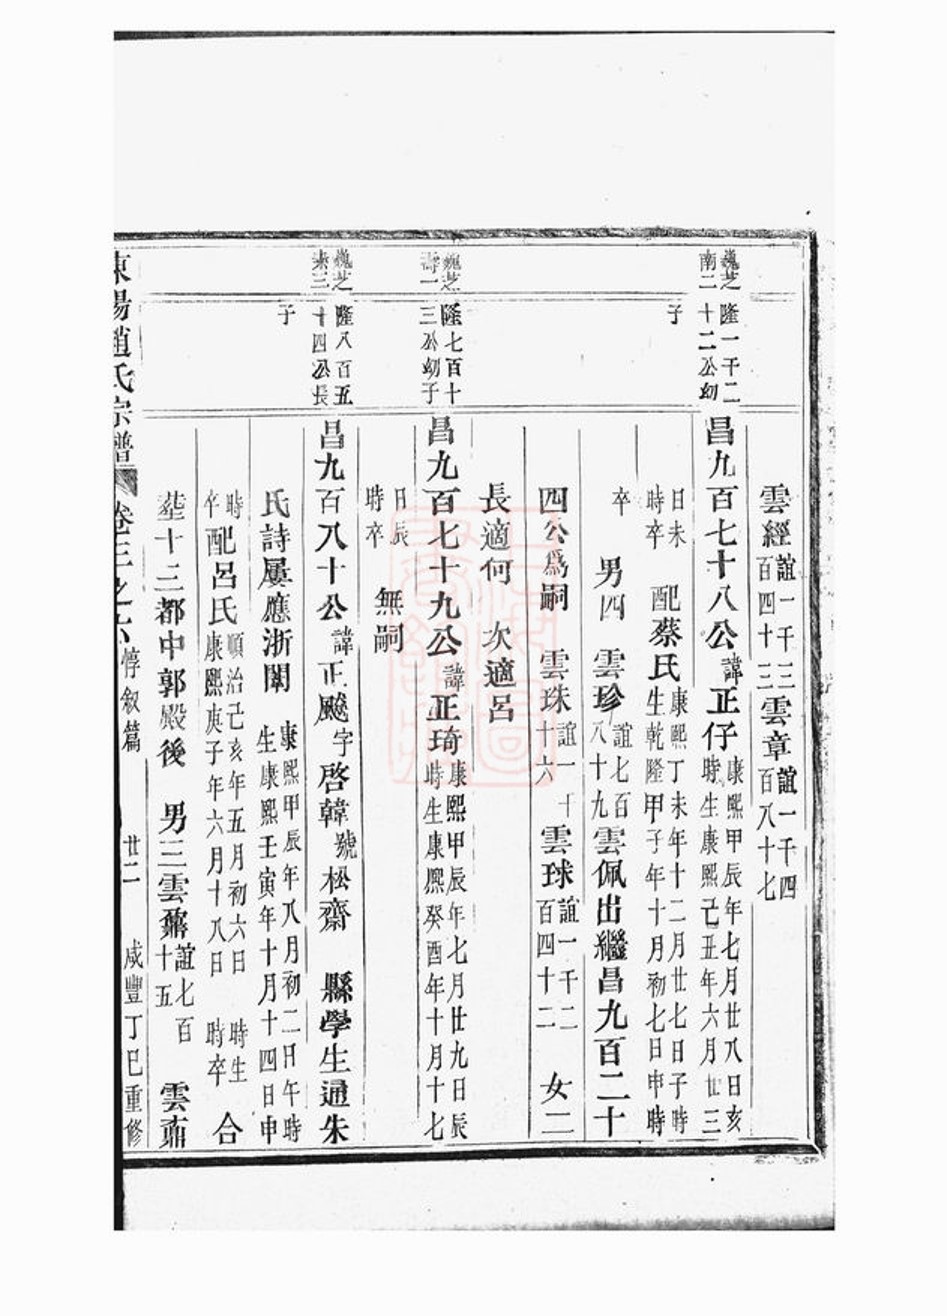 雲經誼一千三百四十三雲章誼一千四百八十七
巍芝南二
隆一千二十二公幼子
昌九百七十八公諱正仔康熙甲辰年七月廿八日亥時生康熙己丑年六月廿三
日未時卒 配蔡氏康熙丁未年十二月廿七日子時生乾隆甲子年十月初七日申時
卒 男四 雲珍誼七百八十九雲佩出繼昌九百二十
四公爲嗣 雲珠誼一千十六 雲球誼一千二百四十二 女二
長適何 次適呂
巍芝壽一
隆七百十三公幼子
昌九百七十九公諱正琦康熙甲辰年七月廿九日辰時生康熙癸酉年十月十七
日辰時卒 無嗣
巍芝
隆八百五十四公長子
昌九百八十公諱正颺字啓韓號松齋 縣學生通朱
氏詩屢應浙闈 康熙甲辰年八月初二日午時生康熙壬寅年十月十四日申
時卒 配呂氏順治己亥年五月初六日 時生康熙庚子年六月十八日 時卒 合
塟十三都中郭殿後 男三雲鼐誼七百十五 雲鼒
東陽趙氏宗譜 卷三之六 惇叙篇 廿二 咸豐丁巳重修